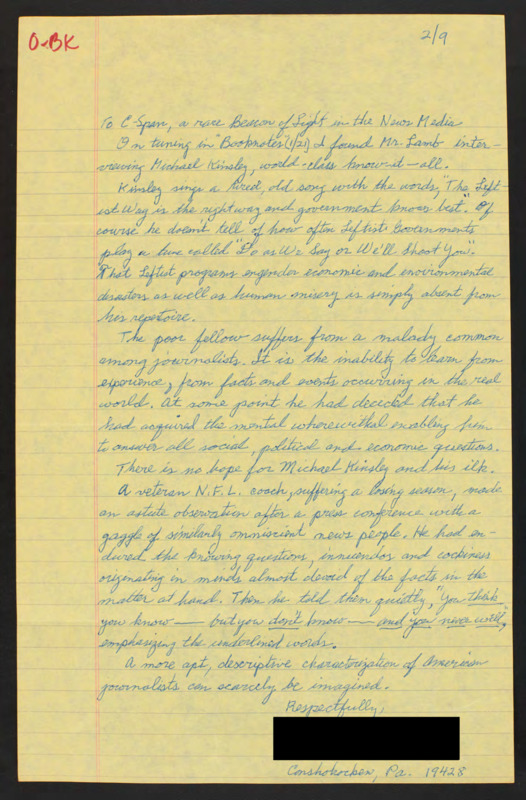 O-BK
2/9
To C-Span, a rare Beacon of Light in the News Media
On tuning in "Booknotes" (1/21) I found Mr. Lamb inter-
viewing Michael Kinsley, world-class know-it-all.
Kinsley sings a tired, old song with the words, "The Left-
ist Way is the right way and government knows best". Of
course he doesn't tell of how often Leftist Governments
play a tune called "Do as We Say or We'll Shoot You".
That Leftist programs engender economic and environmental
disasters as well as human misery is simply absent from
his repertoire.
The poor fellow suffers from a malady common
among journalists. It is the inability to learn from
experience, from facts and events occurring in the real
world. At some point he had decided that he
had acquired the mental wherewithal enabling him
to answer all social, political and economic questions.
There is no hope for Michael Kinsley and his ilk.
A veteran N.F.L. coach, suffering a losing season, made
an astute observation after a press conference with a
gaggle of similarly omniscient news people. He had en-
dured the knowing questions, innuendos and cockiness
originating in minds almost devoid of the facts in the
matter at hand. Then he told them quietly, "You think
you know — but you don't know — and you never will,"
emphasizing the underlined words.
A more apt, descriptive characterization of American
journalists can scarcely be imagined.
Respectfully,
Conshohocken, Pa. 19428